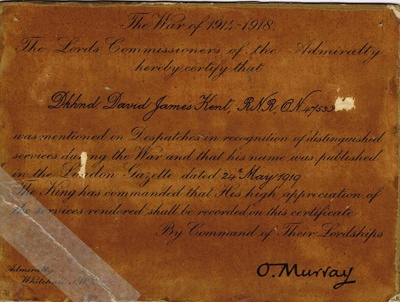 The War of 1914-1918.
The Lords Commissioners of the Admiralty
hereby certify that
Dkhnd David James Kent, R.N.R, O.N
was mentioned in Despatches in recognition of distinguished
services during the War and that his name was published
in the London Gazette dated 24 May 1919
The King has commanded that His high appreciation of
the services rendered shall be recorded on this certificate
By Command of Their Lordships
Admiralty
Whitehall
O. Murray